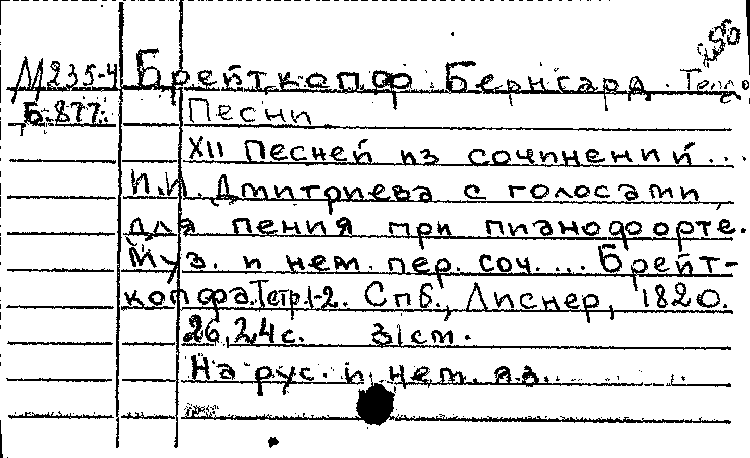 256
М235-4 Брейткопф Бернгард
Б-877. Песни
XII Песней из сочинений...
И.И. Дмитриева с голосами
для пения при пианофорте.
Муз. и нем. пер. соч.... Брейт-
копфа. Тетр. 1-2. Спб., Лиснер, 1820.
26, 24 с. 31 см.
На рус. и нем. яз.